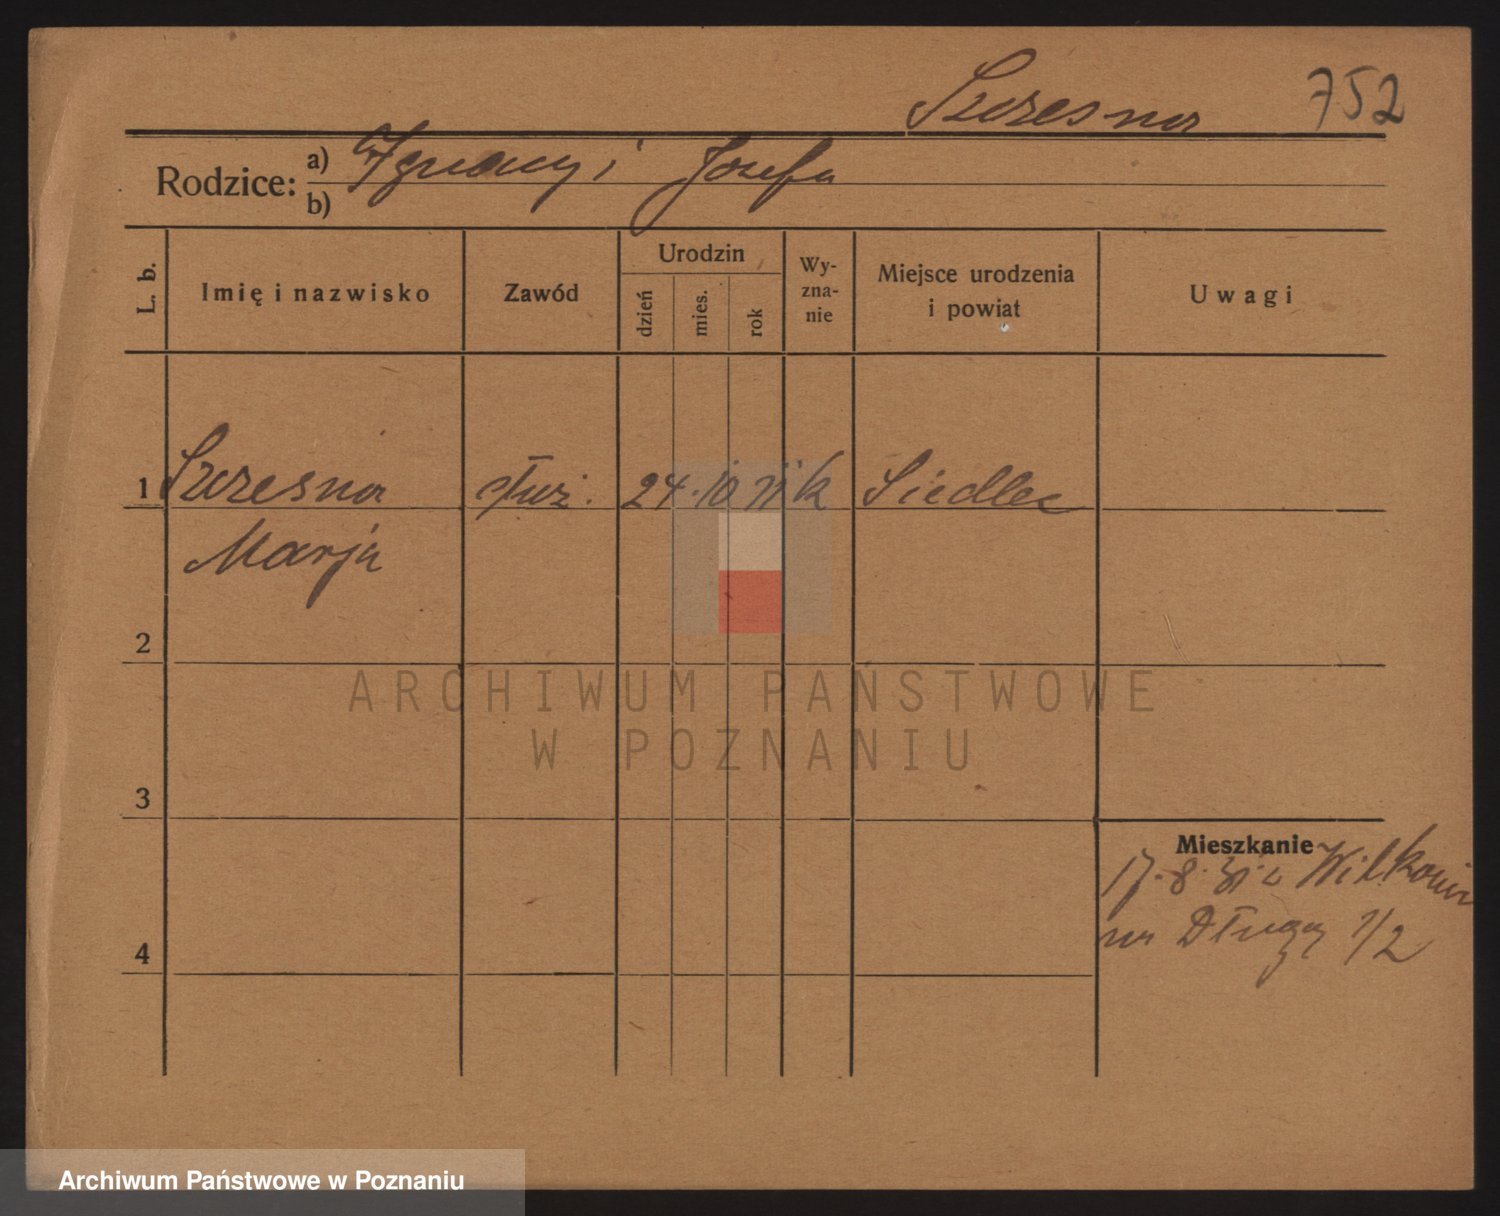 Szczesna 752
Rodzice: a) Ignacy i Jozefa
b)
L. b. Imię i nazwisko Zawód Urodzin dzień mies. rok Wyznanie Miejsce urodzenia i powiat Uwagi
1 Szczesna służ. 24. 10 11 k Siedlec
Marja
2
3
Mieszkanie
17. 8. 31 z
na Długą 1/2
4
ARCHIWUM PAŃSTWOWE
W POZNANIU
Archiwum Państwowe w Poznaniu